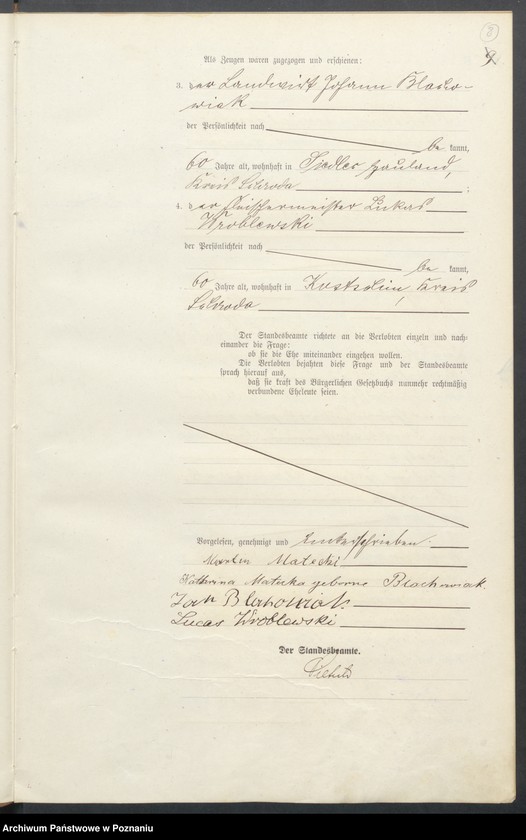 8
9
Als Zeugen waren zugezogen und erschienen:
3. der Landwirt Johann Blacho-
wiak
der Persönlichkeit nach
be kannt,
60 Jahre alt, wohnhaft in Siedlec Hauland,
Kreis Schroda ;
4. der Fleischermeister Lukas
Wroblewski
der Persönlichkeit nach
be kannt,
60 Jahre alt, wohnhaft in Kostschin, Kreis
Schroda
Der Standesbeamte richtete an die Verlobten einzeln und nach-
einander die Frage:
ob sie die Ehe miteinander eingehen wollen.
Die Verlobten bejahten diese Frage und der Standesbeamte
sprach hierauf aus,
daß sie kraft des Bürgerlichen Gesetzbuchs nunmehr rechtmäßig
verbundene Eheleute seien.
Vorgelesen, genehmigt und unterschrieben.
Martin Matecki
Matecka geborene Blachowiak.
Jan Blachowiak
Lucas Wroblewski
Der Standesbeamte.
Archiwum Państwowe w Poznaniu